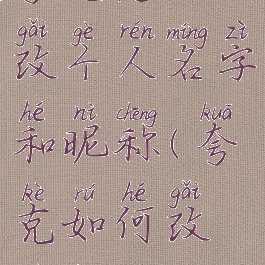 gǎi gè rén míng zì
改个人名字
hé nì chēng kuā
和昵称(夸
kè rú hé gǎi
克如何改